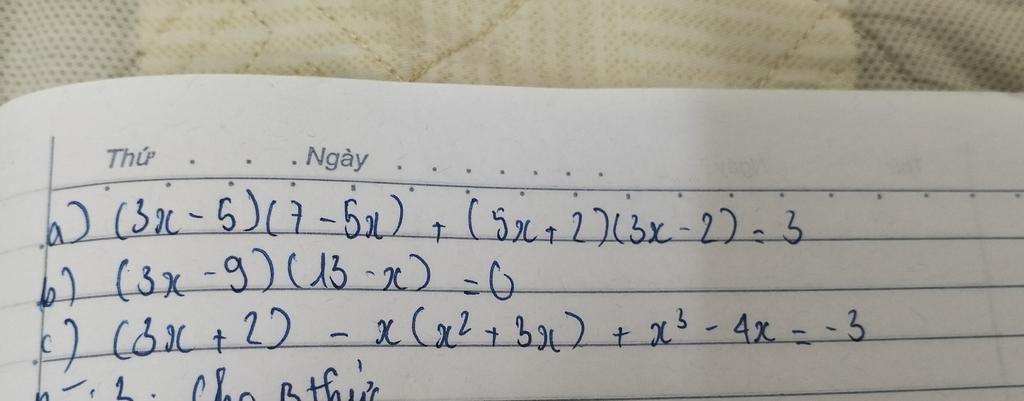 Thứ . . . Ngày . . . . . . .
a) (3x - 5)(7 - 5x) + (5x + 2)(3x - 2) = 3
b) (3x - 9)(13 - x) = 0
c) (3x + 2) - x(x² + 3x) + x³ - 4x = -3
Cho